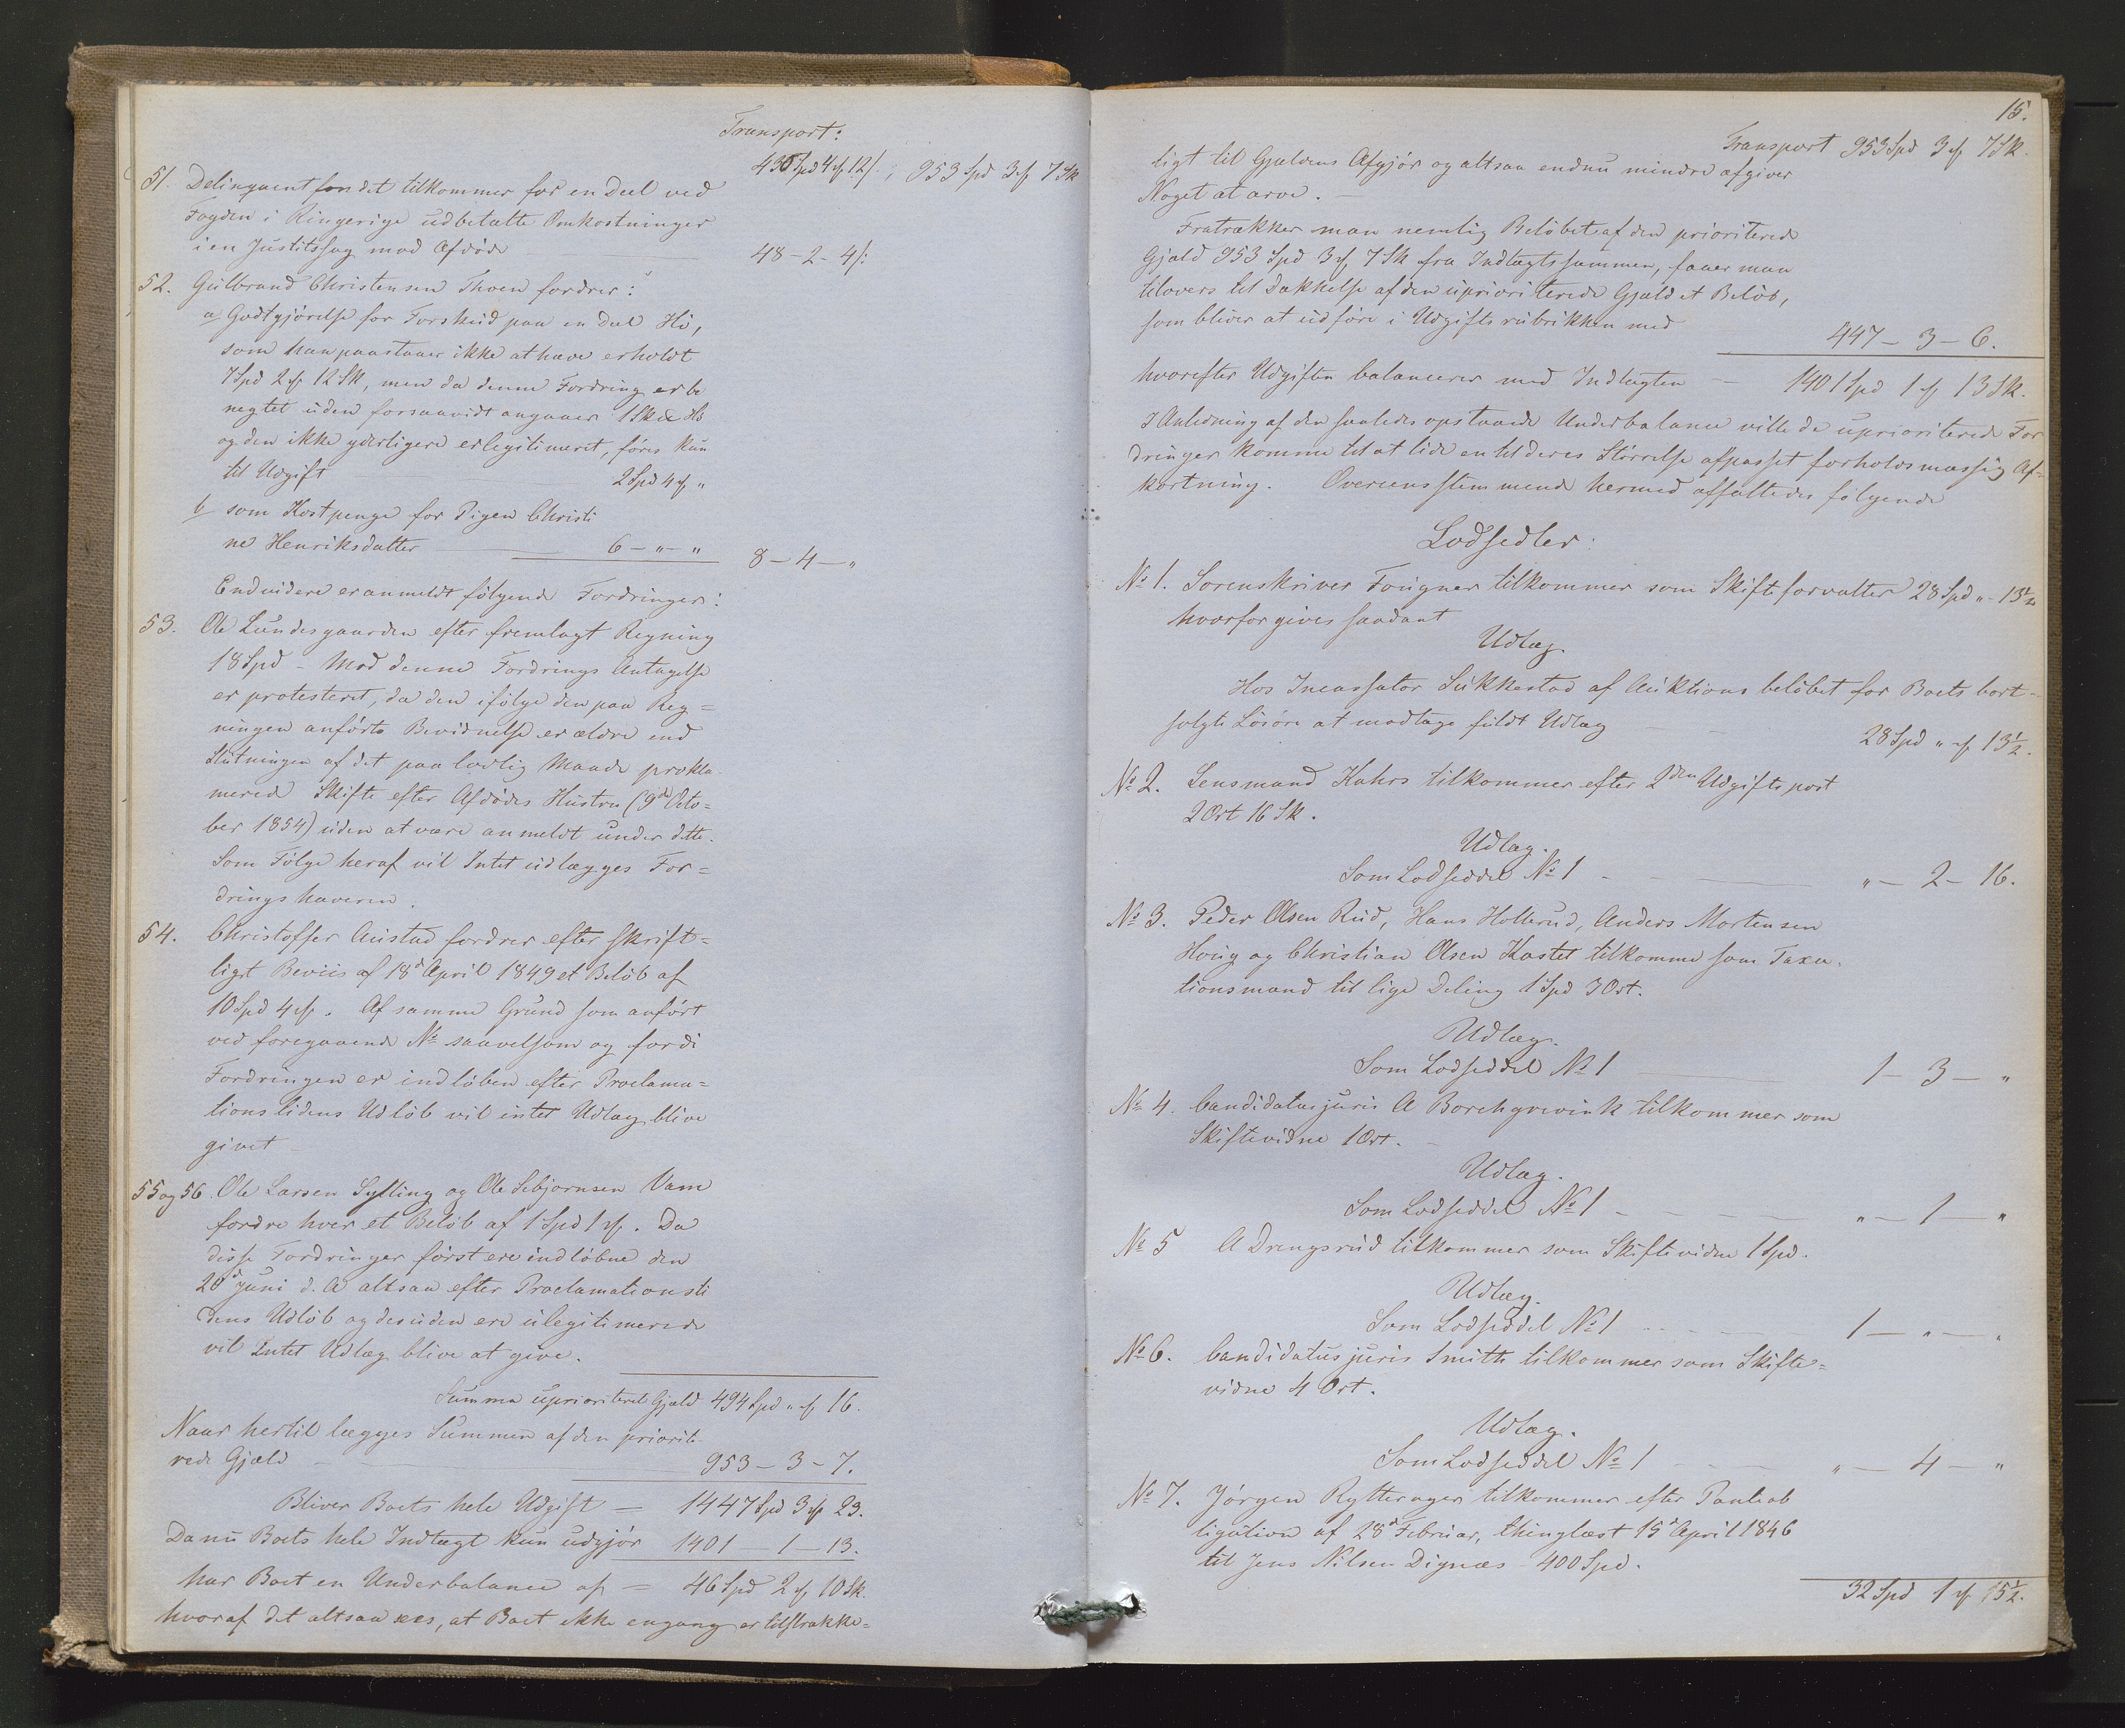 Transport:
436 Spd 4 ß 12/. ; 953 Spd 3 ß 7 Sk
51. Delinqventfondet tilkommer for en Deel ved
Fogden i Ringerige udbetalte Omkostninger
i en Justitssag mod Afdøde 48 - 2 - 4/:
52. Gulbrand Christensen Thoen fordrer:
a, Godtgjørelse for Forskud paa en Deel Hø,
som han paastaaer ikke at have erholdt
7 Spd 2 ß 12 Sk, men da denne Fordring er be
negtet uden forsaavidt angaaer 1 Sk Hø
og den ikke yderligere er legitimeret, føres kun
til Udgift 2 Spd 4 ß "
b, som Kostpenge for Pigen Christi
ne Henriksdatter 6 - " - " 8 - 4 - "
Endvidere er anmeldt følgende Fordringer:
53. Ole Lundesgaarden efter fremlagt Regning
18 Spd - Mod denne Fordrings Antagelse
er protesteret, da den ifølge den paa Reg=
ningen anførte Bevidnelse er ældre end
Slutningen af det paa lovlig Maade prokla-
merede Skifte efter Afdødes Hustru (9de Octo=
ber 1854) uden at være anmeldt under dette.
Som Følge heraf vil Intet udlægges For=
dringshaveren.
54. Christoffer Austad fordrer efter skrift=
ligt Beviis af 18d April 1849 et Beløb af
10 Spd 4 ß. Af samme Grund som anført
ved foregaaende No saavelsom og fordi
Fordringen er indløben efter Proclama=
tionstidens Udløb vil intet Udlæg blive
givet -
55 og 56. Ole Larsen Sylling og Ole Sebjørnsen Vam
fordre hver et Beløb af 1 Spd 1 ß. Da
disse Fordringer først ere indløbne den
20d Juni d. A altsaa efter Proclamationsti
dens Udløb og desuden ere ulegitimerede
vil Intet Udlæg blive at give.
Summa uprioriteret Gjæld 494 Spd " ß 16.
Naar hertil lægges Summen af den priorite-
rede Gjæld 953 - 3 - 7.
Bliver Boets hele Udgift - 1447 Spd 3 ß 23.
Da nu Boets hele Indtægt kun udgjør 1401 - 1 - 13.
har Boet en Underbalance af - 46 Spd 2 ß 10 Sk.
hvoraf det altsaa sees, at Boet ikke engang er tilstrække=
15.
Transport 953 Spd 3 ß 7 Sk.
ligt til Gjældens Afgjør og altsaa endnu mindre afgiver
Noget at arve. -
Fratrækker man nemlig Beløbet af den prioriterede
Gjæld 953 Spd 3 ß 7 Sk fra Indtægtssummen, faaer man
tilovers til Dækkelse af den uprioriterede Gjæld et Beløb,
som bliver at udføre i Udgiftsrubrikken med 447 - 3 - 6.
hvorefter Udgiften balancerer med Indtægten - 1401 Spd 1 ß 13 Sk.
I Anledning af den saaledes opstaaede Underbalance ville de uprioriterede For
dringer komme til at lide en til deres Størrelse afpasset forholdsmæssig Af=
kortning. Overensstemmende hermed affattedes følgende
Lodsedler:
No 1. Sorenskriver Fougner tilkommer som Skifteforvalter 28 Spd " - 13½
hvorfor gives saadant
Udlæg.
Hos Incassator Sukkestad af Auktionsbeløbet for Boets bort-
solgte Løsøre at modtage fuldt Udlæg 28 Spd " ß 13½.
No 2. Lensmand Kahrs tilkommer efter 2den Udgiftspost
2 Ort 16 Sk.
Udlæg.
Som Lodseddel No 1 " - 2 - 16.
No 3. Peder Olsen Rud, Hans Hollerud, Anders Mortensen
Houg og Christian Olsen Kastet tilkomme som Taxa-
tionsmænd til lige Deling 1 Spd 3 Ort.
Udlæg.
Som Lodseddel No 1 1 - 3 - "
No 4. Candidatus juris A Borchgrevink tilkommer som
Skiftevidne 1 Ort. -
Udlæg.
Som Lodseddel No 1 " - 1 - "
No 5 A Drengsrud tilkommer som Skiftevidne 1 Spd.
Udlæg.
Som Lodseddel No 1 1 - " - "
No 6. Candidatus juris Smith tilkommer som Skifte=
vidne 4 Ort.
Udlæg.
Som Lodseddel No 1 " - 4 - "
No 7. Jørgen Rytterager tilkommer efter Panteob
ligation af 28d Februar, thinglæst 15d April 1846
til Jens Nilsen Dignæs 400 Spd.
32 Spd 1 ß 15½.